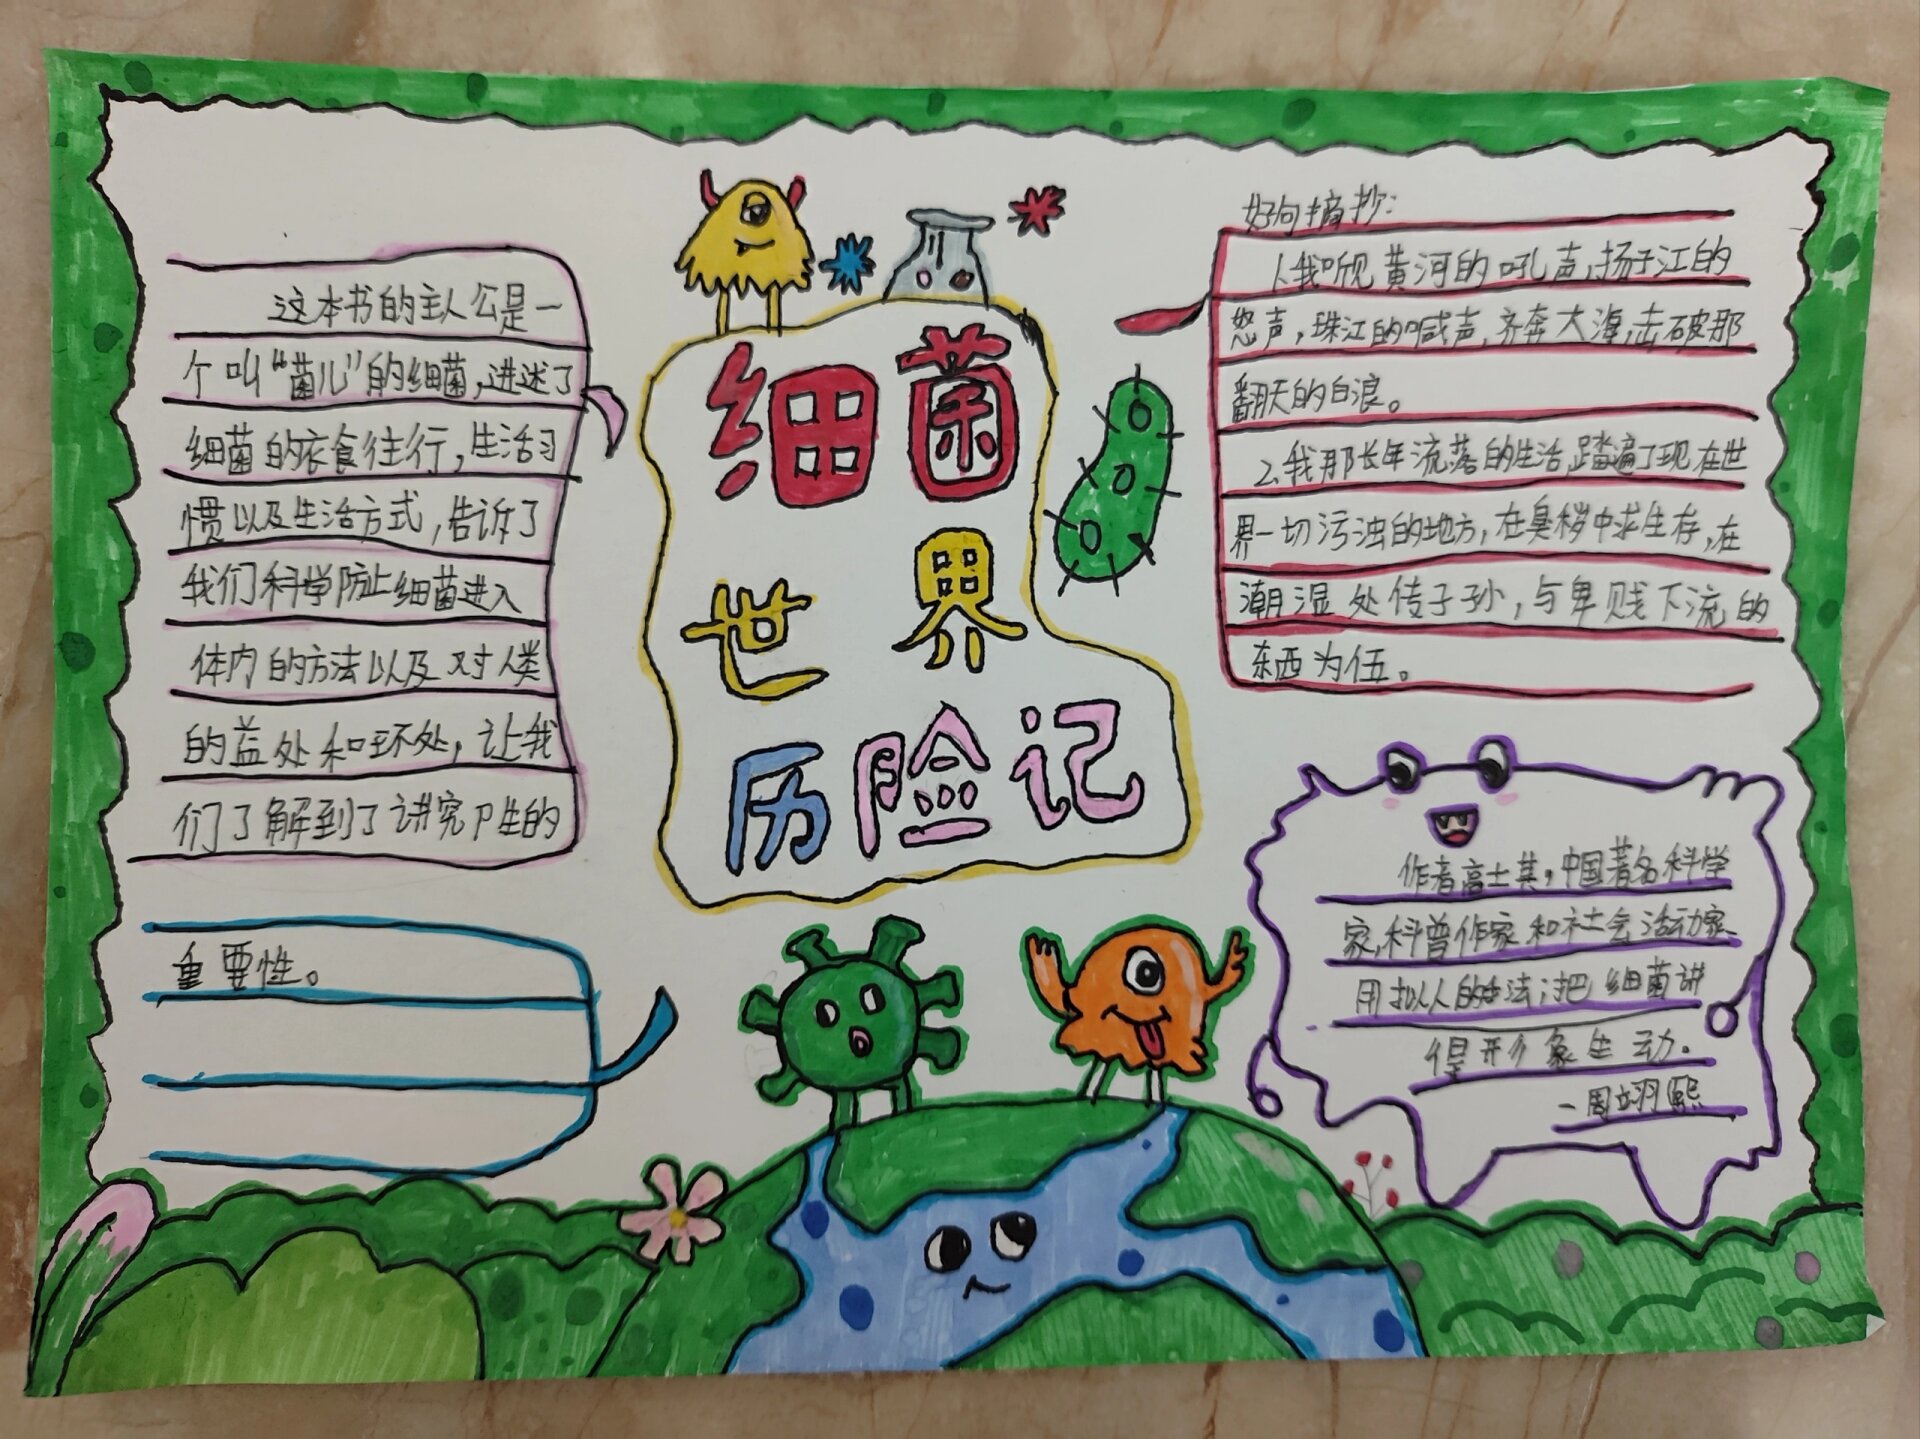 这本书的主人公是一
个叫“菌儿”的细菌,进述了
细菌的衣食往行,生活习
惯以及生活方式,告诉了
我们科学防止细菌进入
体内的方法以及对人类
的益处和环处,让我
们了解到了讲究卫生的
重要性。
细菌
世界
历险记
好句摘抄:
1.我听见黄河的吼声,扬子江的
怒声,珠江的喊声,齐奔大海,击破那
翻天的白浪。
2.我那长年流落的生活,踏遍了现在世
界一切污浊的地方,在臭秽中求生存,在
潮湿处传子孙,与卑贱下流的
东西为伍。
作者高士其,中国著名科学
家,科普作家和社会活动家
用拟人的手法,把细菌讲
得形象生动.
一周翊熙